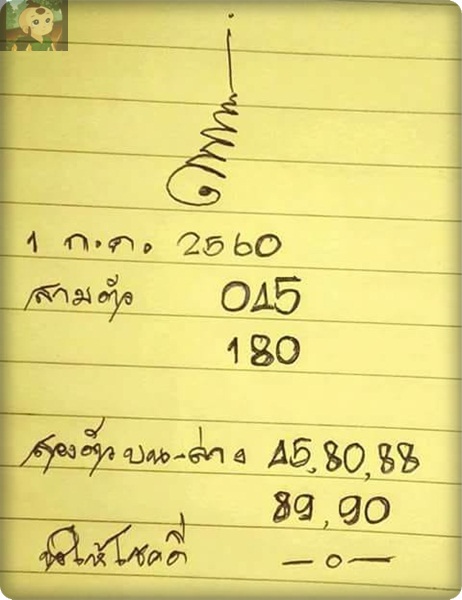 1 ก.ค. 2560
สามตัว 045
180
สองตัวบน-ล่าง 45,80,88
89,90
ขอให้โชคดี —o—